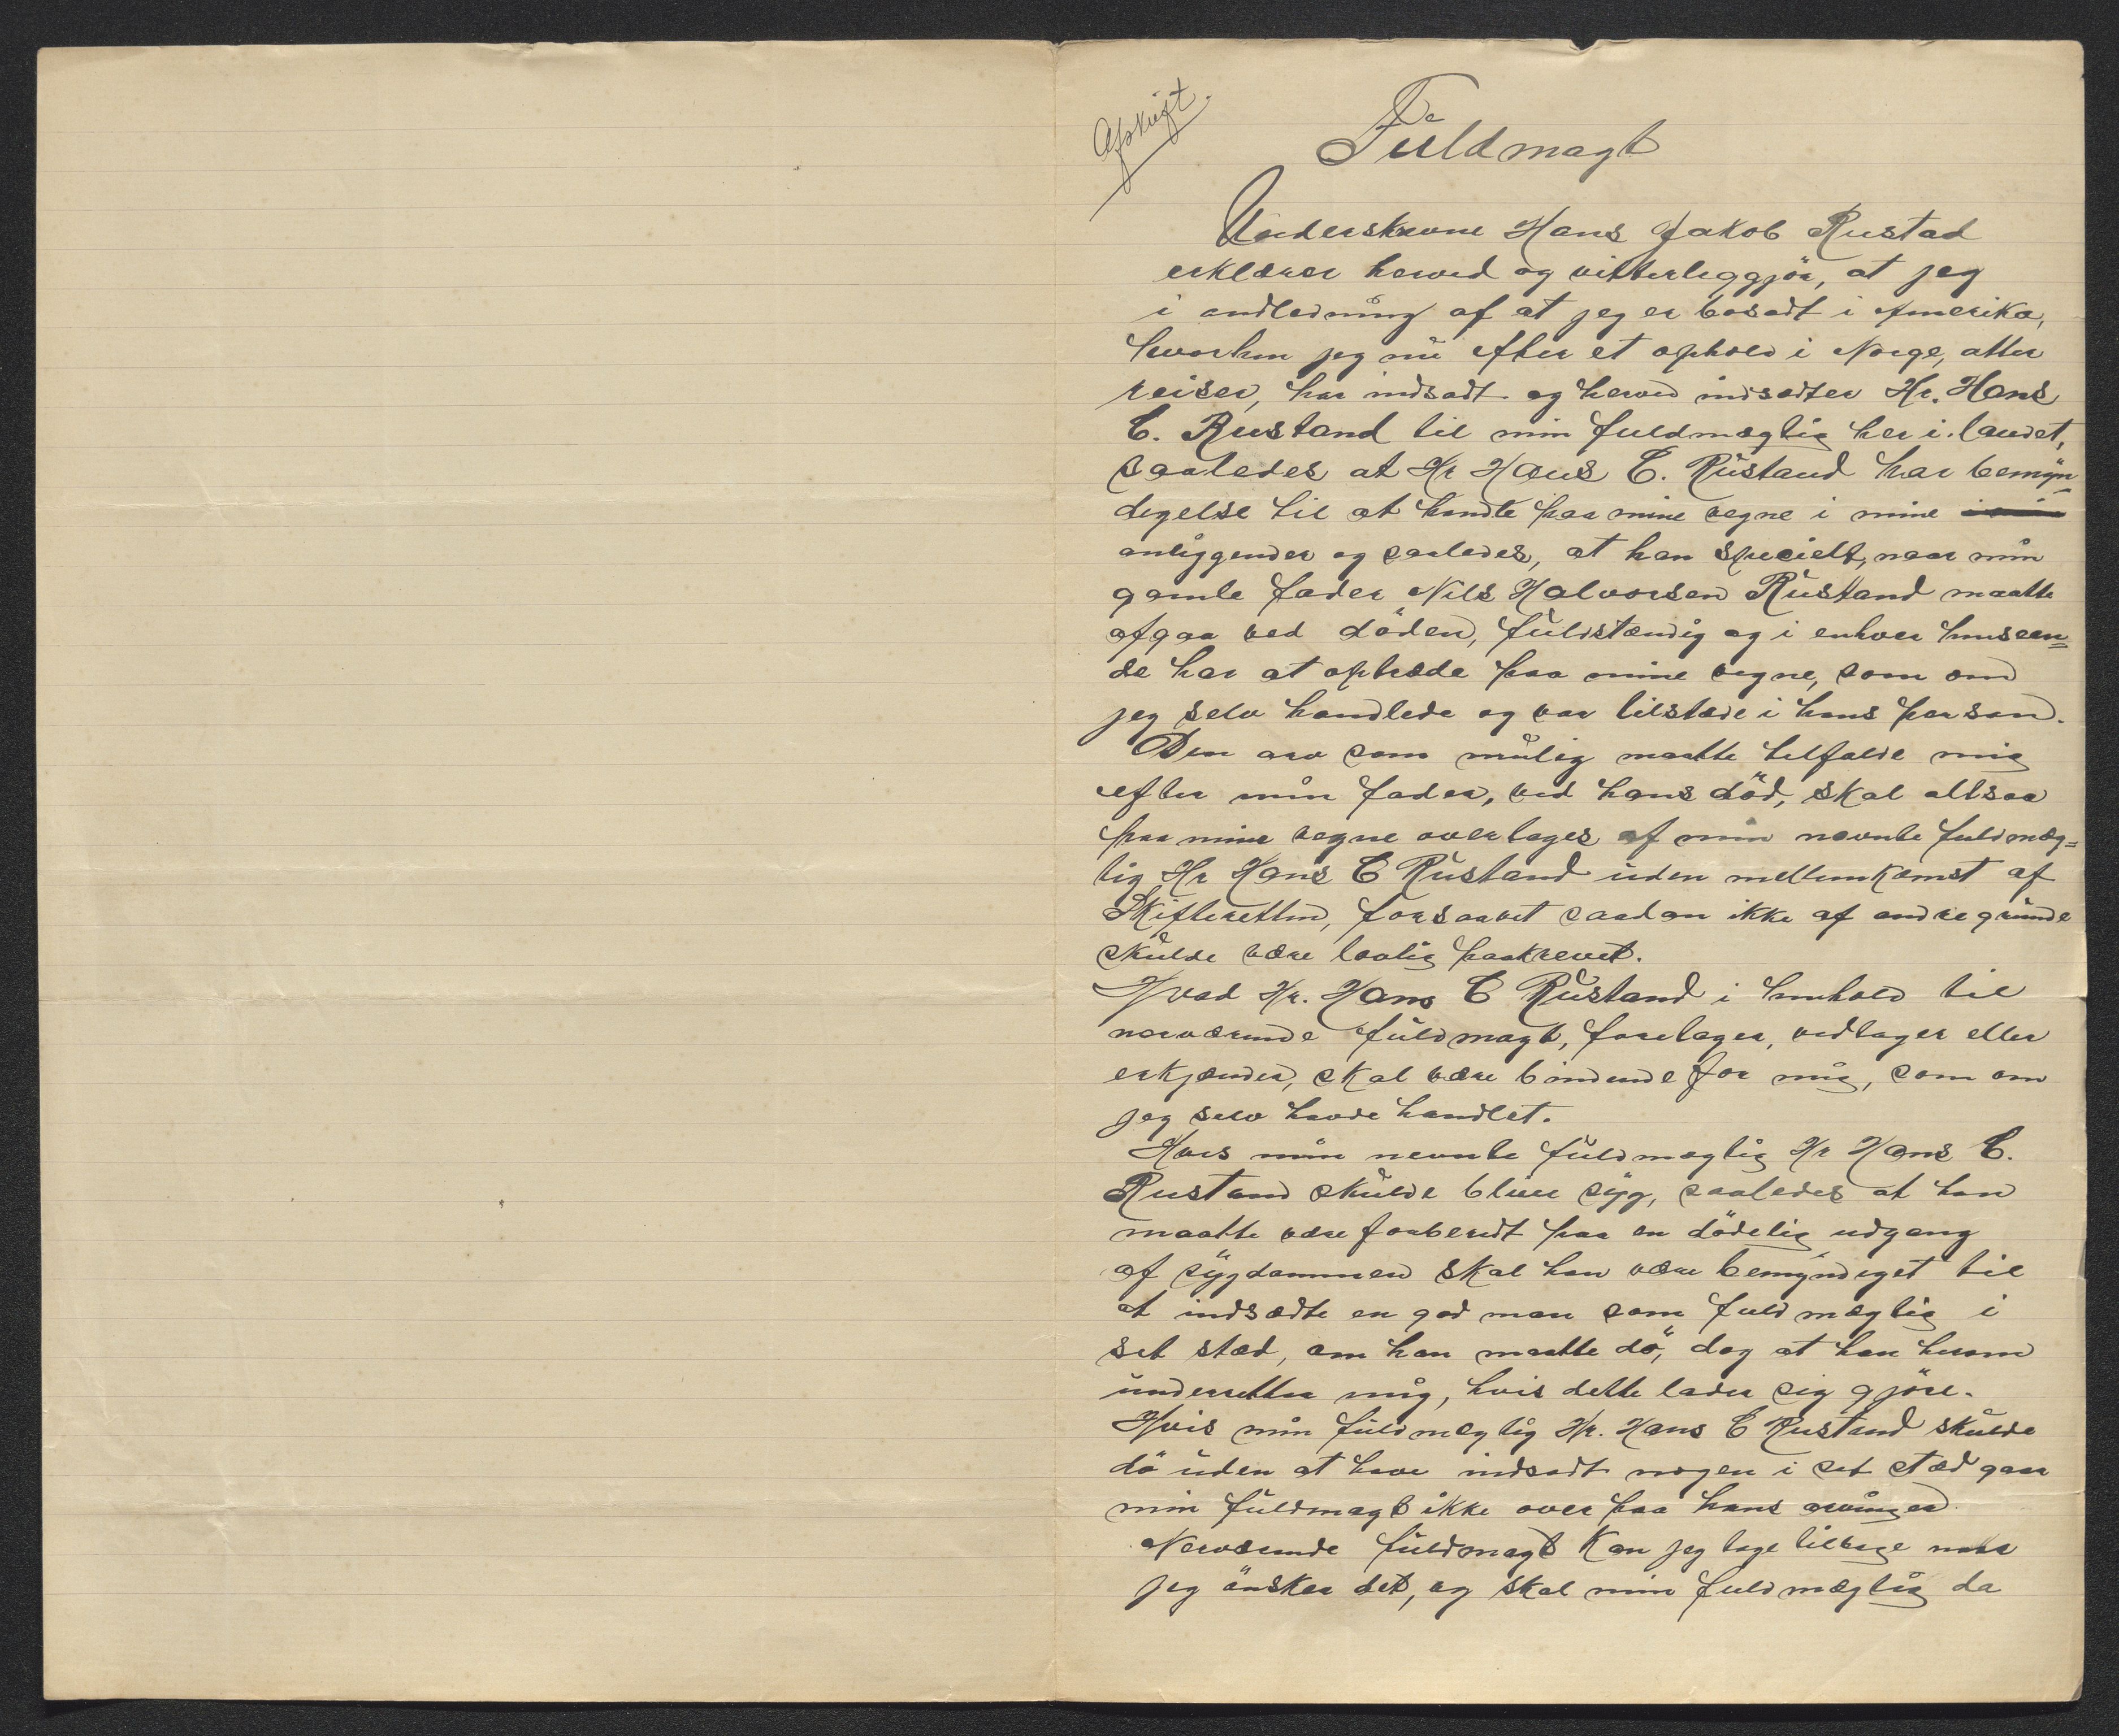 Afskrift.
Fuldmagt
Underskrevne Hans Jakob Rustad
erklærer herved og vitterleggjör, at jeg
i andledning af at jeg er bosadt i Amerika,
hvorhen jeg nu efter et ophold i Norge, atter
reiser, har indsadt og herved indsædter Hr. Hans
C. Rustand til min fuldmægtig her i landet,
saaledes at Hr Hans C. Rustand har bemyn-
degelse til at handle paa mine vegne i mine
anliggender og saaledes, at han specielt, naar min
gamle fader Nils Halvorsen Rustand maatte
afgaa ved döden, fuldstændig og i enhver henseen=
de har at optræde paa mine vegne, som om
jeg selv handlede og var tilstæde i hans person.
Den arv som mulig maatte tilfalde mig
efter min fader, ved hans död, skal altsaa
paa mine vegne overtages af min nævnte fuldmæg=
tig Hr Hans C Rustand uden mellemkomst af
Skifteretten, forsaavet saadan ikke af andre grunde
skulde være lovlig paakrevet.
Hvad Hr. Hans C Rustand i henhold til
nærværende fuldmagt, foretager, vedtager eller
erkjender, skal være bindende for mig, som om
jeg selv havde handlet.
Hvis min nevnte fuldmægtig Hr Hans C.
Rustand skulde blive syg, saaledes at han
maatte være forberedt paa en dödelig udgang
af sygdommen skal han være bemyndiget til
at indsædte en god man som fuldmægtig i
set stæd, om han maatte dö, dog at han herom
underretter mig, hvis dette lader sig gjöre.
Hvis min fuldmægtig Hr. Hans C Rustand skulde
dö uden at have indsadt nogen i set stæd gaar
min fuldmagt ikke over paa hans arvinger
Nerværende fuldmagt Kan jeg tage tilbage naar
jeg önsker det, og skal min fuldmægtig da